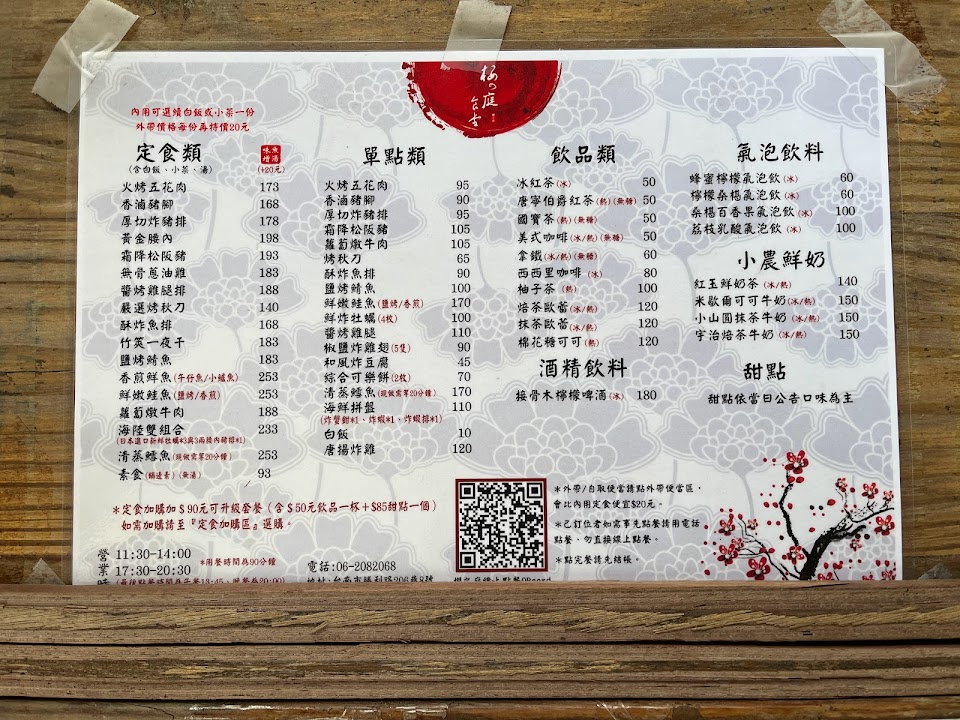 桜の庭
食堂
內用可選續白飯或小菜一份
外帶價格每份再特價20元
定食類
味噌魚湯
(含白飯、小菜、湯)
(+20元)
火烤五花肉 173
香滷豬腳 168
厚切炸豬排 178
黃金腰內 198
霜降松阪豬 193
無骨蔥油雞 183
醬烤雞腿排 188
嚴選烤秋刀 140
酥炸魚排 168
竹筴一夜干 183
鹽烤鯖魚 183
香煎鮮魚(午仔魚/小鱸魚) 253
鮮嫩鮭魚(鹽烤/香煎) 253
蘿蔔燉牛肉 188
海陸雙組合 233
清蒸鱈魚(現做需等20分鐘) 253
素食(鍋邊素)(無湯) 93
單點類
火烤五花肉 95
香滷豬腳 90
厚切炸豬排 95
霜降松阪豬 105
蘿蔔燉牛肉 105
烤秋刀 65
酥炸魚排 90
鹽烤鯖魚 100
鮮嫩鮭魚(鹽烤/香煎) 170
鮮炸牡蠣(4粒) 100
醬烤雞腿 110
椒鹽炸雞翅(5隻) 90
和風炸豆腐 45
綜合可樂餅(2枚) 70
清蒸鱈魚(現做需等20分鐘) 170
海鮮拼盤 110
白飯 10
唐揚炸雞 120
飲品類
冰紅茶(冰) 50
唐寧伯爵紅茶(熱)(無糖) 50
國寶茶(熱)(無糖) 50
美式咖啡(冰/熱)(無糖) 50
拿鐵(冰/熱)(無糖) 60
西西里咖啡(冰) 80
柚子茶(熱) 100
焙茶歐蕾(冰/熱) 120
抹茶歐蕾(冰/熱) 120
棉花糖可可(熱) 120
酒精飲料
接骨木檸檬啤酒(冰) 180
氣泡飲料
蜂蜜檸檬氣泡飲(冰) 60
檸檬桑椹氣泡飲(冰) 60
桑椹百香果氣泡飲(冰) 100
荔枝乳酸氣泡飲(冰) 100
小農鮮奶
紅玉鮮奶茶(冰/熱) 140
米歇爾可可牛奶(冰/熱) 150
小山圓抹茶牛奶(冰/熱) 150
宇治焙茶牛奶(冰/熱) 150
甜點
甜點依當日公告口味為主
*定食加購加$90元可升級套餐(含$50元飲品一杯+$85甜點一個)
如需加購請至『定食加購區』選購。
營業時
11:30-14:00
17:30-20:30
*用餐時間為90分鐘
電話:06-2082068
*外帶/自取便當請點外帶便當區,
會比內用定食便宜$20元。
*已訂位者如需事先點餐請用電話
點餐,勿直接線上點餐。
*點完餐請先結帳。